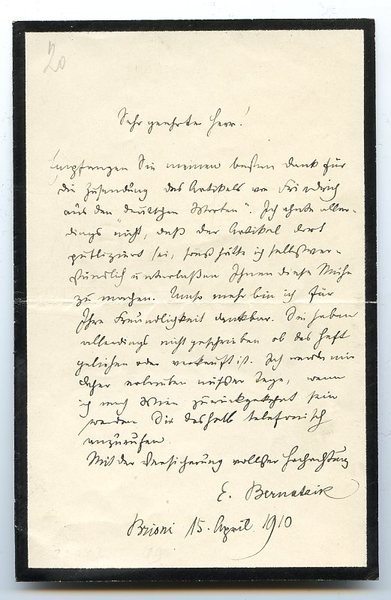 20
Sehr geehrter Herr!
Empfangen Sie meinen besten Dank für
die Zusendung des Artikels von Friedrich
aus den „deutschen Worten“. Ich ahnte aller-
dings nicht, daß der Artikel dort
publiziert sei, sonst hätte ich selbstver-
ständlich unterlaßen Ihnen diese Mühe
zu machen. Umso mehr bin ich für
Ihre Freundlichkeit dankbar. Sie haben
allerdings nicht geschrieben ob das Heft
geliehen oder verkauft ist. Ich werde mir
daher erlauben Tage, wenn
ich nach Wien zurückgekehrt sein
werde Sie deshalb telefonisch
anzurufen.
Mit der Versicherung vollster Hochachtung
E. Bernatzik
Brioni 15. April 1910